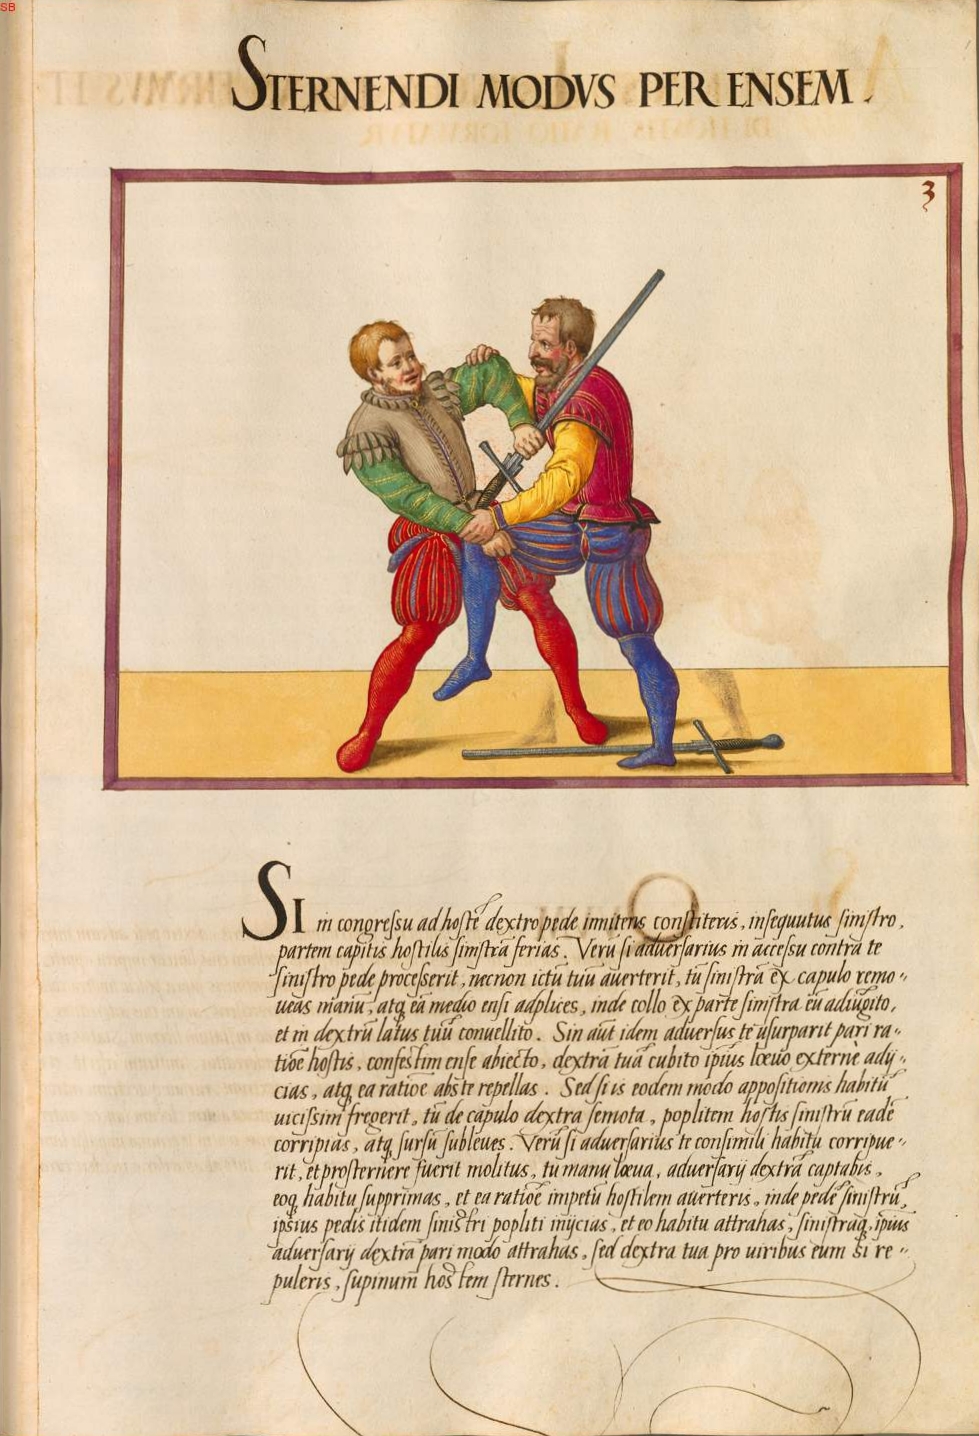 SB
STERNENDI MODVS PER ENSEM.
3
SI in congressu ad hostē dextro pede innitens constiteris, insequutus sinistro,
partem capitis hostilis sinistrā ferias. Verū si adversarius in accessu contra te
sinistro pede processerit, necnon ictū tuū averterit, tū sinistrā ex capulo remo-
ueas manū, atq; eā medio ensi adplices, inde collo ex parte sinistra eū adiūgito,
et in dextrū latus tuū conuellito. Sin aūt idem adversus te usurparit pari ra-
tioē hostis, confestim ense abiecto, dextrā tuā cubito ipsius loeuo externè adij-
cias, atq; ea ratioē abs te repellas. Sed si is eodem modo appositionis habitū
uicissim fregerit, tū de capulo dextra semota, poplitem hostis sinistrū eadē
corripias, atq; sursū subleues. Verū si adversarius te consimili habitu corripue-
rit, et prosternere fuerit molitus, tu manu loeua, adversarij dextrā captabis,
eoq; habitu supprimas, et ea ratioē impetū hostilem averteris, inde pedē sinistrū,
ipsius pedis itidem sinistri popliti inijcias, et eo habitu attrahas, sinistraq; ipsius
adversarij dextrā pari modo attrahas, sed dextra tua pro uiribus eum si re-
puleris, supinum hostem sternes.